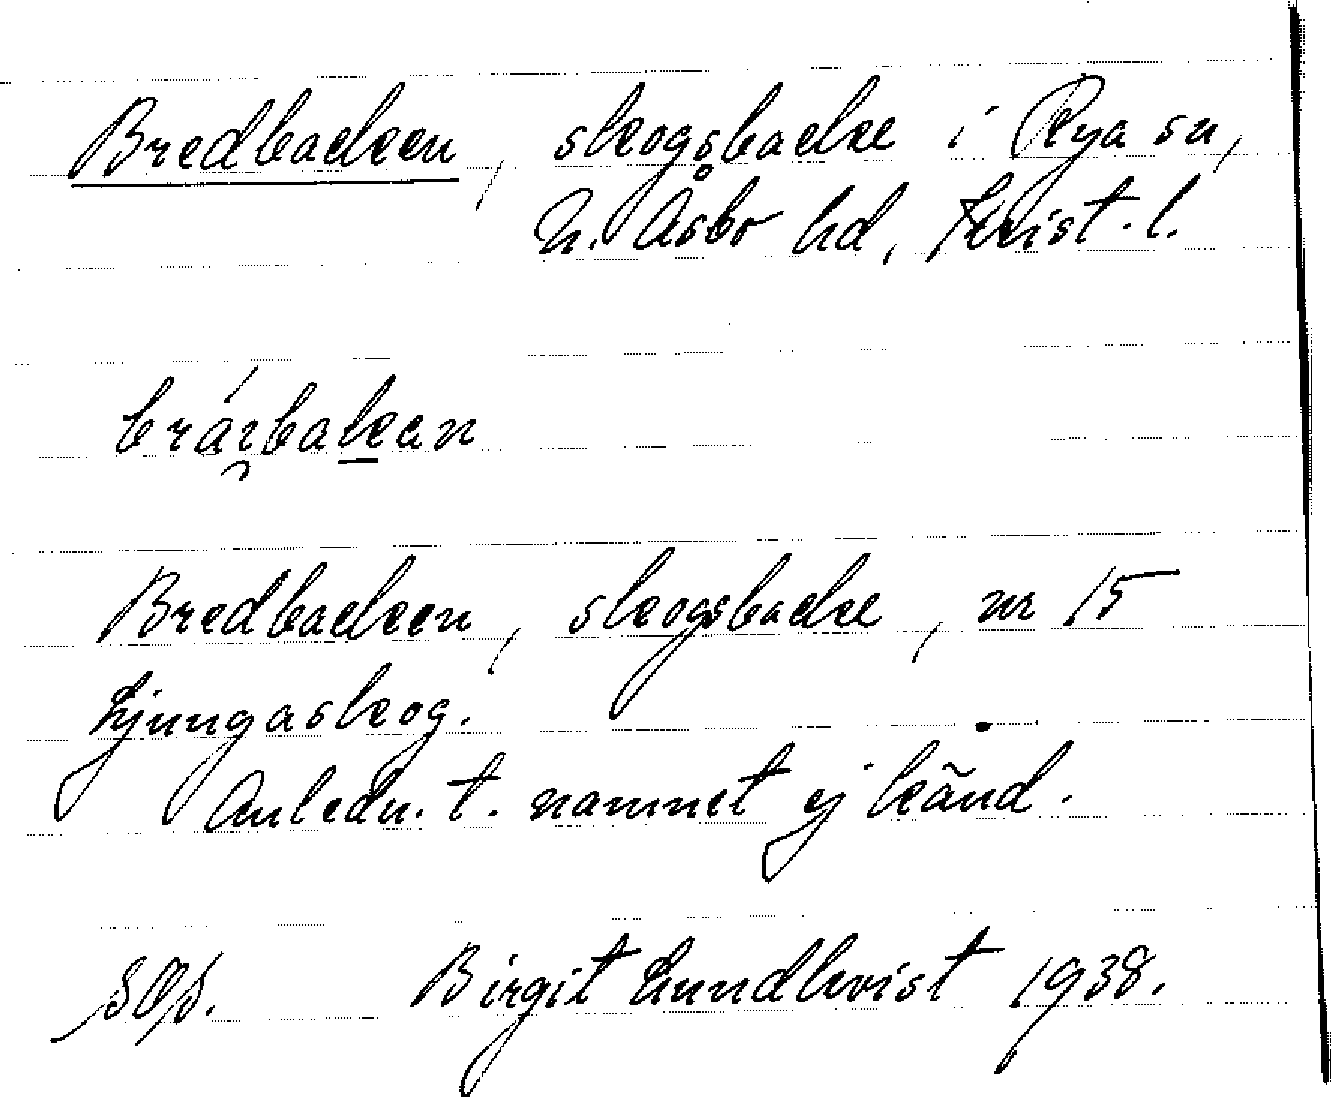 Bredbacken, skogsbacke i Rya sn,
N. Åsbo hd, Krist. l.
bráɪ̯bakan
Bredbacken, skogsbacke, nr 15
Ljungaskog.
Anledn. t. namnet ej känd.
Birgit Lundkvist 1938.